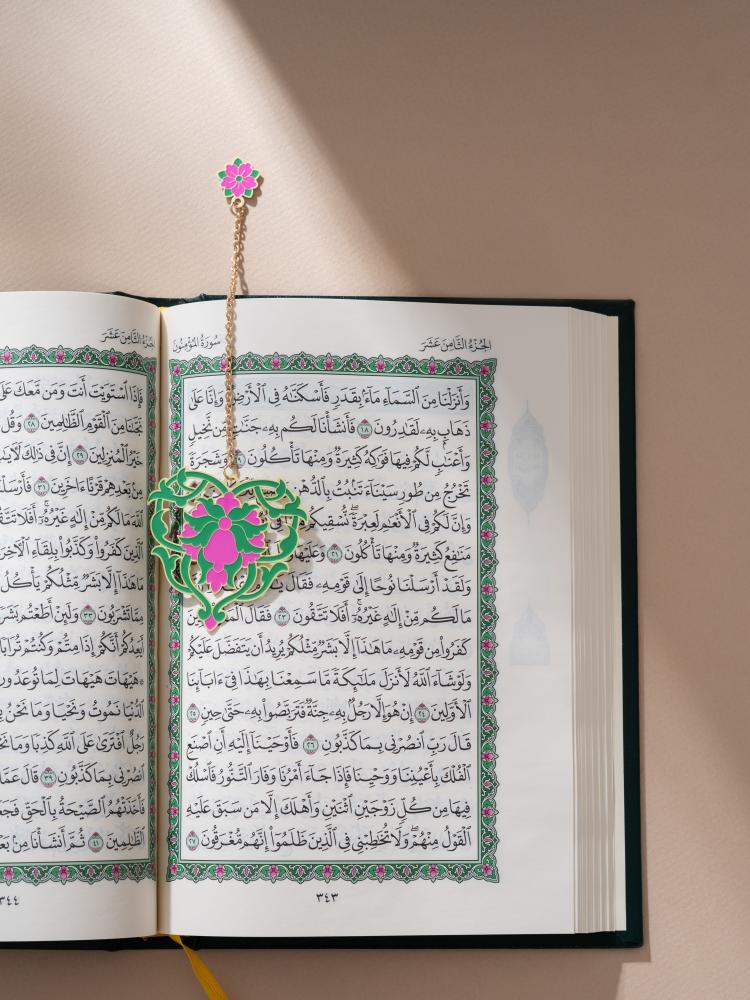 الجُزْءُ الثَّامِنَ عَشَرَ سُورَةُ المُؤْمِنُونَ
وَأَنزَلْنَا مِنَ ٱلسَّمَآءِ مَآءًۢ بِقَدَرٍ فَأَسْكَنَّـٰهُ فِى ٱلْأَرْضِ وَإِنَّا عَلَىٰ
ذَهَابٍۭ بِهِۦ لَقَـٰدِرُونَ ١٨ فَأَنشَأْنَا لَكُم بِهِۦ جَنَّـٰتٍ مِّن نَّخِيلٍ
وَأَعْنَـٰبٍ لَّكُمْ فِيهَا فَوَٰكِهُ كَثِيرَةٌ وَمِنْهَا تَأْكُلُونَ ١٩ وَشَجَرَةً
تَخْرُجُ مِن طُورِ سَيْنَآءَ تَنۢبُتُ بِٱلدُّهْنِ
وَإِنَّ لَكُمْ فِى ٱلْأَنْعَـٰمِ لَعِبْرَةً ۖ نُّسْقِيكُم
مَنَـٰفِعُ كَثِيرَةٌ وَمِنْهَا تَأْكُلُونَ ٢١ وَعَلَيْهَا
وَلَقَدْ أَرْسَلْنَا نُوحًا إِلَىٰ قَوْمِهِۦ فَقَالَ
مَا لَكُم مِّنْ إِلَـٰهٍ غَيْرُهُۥٓ ۖ أَفَلَا تَتَّقُونَ ٢٣ فَقَالَ
كَفَرُوا۟ مِن قَوْمِهِۦ مَا هَـٰذَآ إِلَّا بَشَرٌ مِّثْلُكُمْ يُرِيدُ أَن يَتَفَضَّلَ عَلَيْكُمْ
وَلَوْ شَآءَ ٱللَّهُ لَأَنزَلَ مَلَـٰٓئِكَةً مَّا سَمِعْنَا بِهَـٰذَا فِىٓ ءَابَآئِنَا
ٱلْأَوَّلِينَ ٢٤ إِنْ هُوَ إِلَّا رَجُلٌۢ بِهِۦ جِنَّةٌ فَتَرَبَّصُوا۟ بِهِۦ حَتَّىٰ حِينٍ ٢٥
قَالَ رَبِّ ٱنصُرْنِى بِمَا كَذَّبُونِ ٢٦ فَأَوْحَيْنَآ إِلَيْهِ أَنِ ٱصْنَعِ
ٱلْفُلْكَ بِأَعْيُنِنَا وَوَحْيِنَا فَإِذَا جَآءَ أَمْرُنَا وَفَارَ ٱلتَّنُّورُ ۙ فَٱسْلُكْ
فِيهَا مِن كُلٍّ زَوْجَيْنِ ٱثْنَيْنِ وَأَهْلَكَ إِلَّا مَن سَبَقَ عَلَيْهِ
ٱلْقَوْلُ مِنْهُمْ ۖ وَلَا تُخَـٰطِبْنِى فِى ٱلَّذِينَ ظَلَمُوٓا۟ ۖ إِنَّهُم مُّغْرَقُونَ ٢٧
٣٤٣
الجُزْءُ الثَّامِنَ عَشَرَ
فَإِذَا ٱسْتَوَيْتَ أَنتَ وَمَن مَّعَكَ عَلَى
نَجَّىٰنَا مِنَ ٱلْقَوْمِ ٱلظَّـٰلِمِينَ ٢٨ وَقُل
خَيْرُ ٱلْمُنزِلِينَ ٢٩ إِنَّ فِى ذَٰلِكَ لَـَٔايَـٰتٍ
مِنۢ بَعْدِهِمْ قَرْنًا ءَاخَرِينَ ٣١ فَأَرْسَلْنَا
ٱللَّهَ مَا لَكُم مِّنْ إِلَـٰهٍ غَيْرُهُۥٓ ۖ أَفَلَا تَتَّقُونَ
ٱلَّذِينَ كَفَرُوا۟ وَكَذَّبُوا۟ بِلِقَآءِ ٱلْـَٔاخِرَةِ
مَا هَـٰذَآ إِلَّا بَشَرٌ مِّثْلُكُمْ يَأْكُلُ
مِمَّا تَشْرَبُونَ ٣٣ وَلَئِنْ أَطَعْتُم بَشَرًا
أَيَعِدُكُمْ أَنَّكُمْ إِذَا مِتُّمْ وَكُنتُمْ تُرَابًا
هَيْهَاتَ هَيْهَاتَ لِمَا تُوعَدُونَ
ٱلدُّنْيَا نَمُوتُ وَنَحْيَا وَمَا نَحْنُ
رَجُلٌ ٱفْتَرَىٰ عَلَى ٱللَّهِ كَذِبًا وَمَا نَحْنُ
ٱنصُرْنِى بِمَا كَذَّبُونِ ٣٩ قَالَ عَمَّا
فَأَخَذَتْهُمُ ٱلصَّيْحَةُ بِٱلْحَقِّ
ٱلظَّـٰلِمِينَ ٤١ ثُمَّ أَنشَأْنَا مِنۢ
٣٤٤